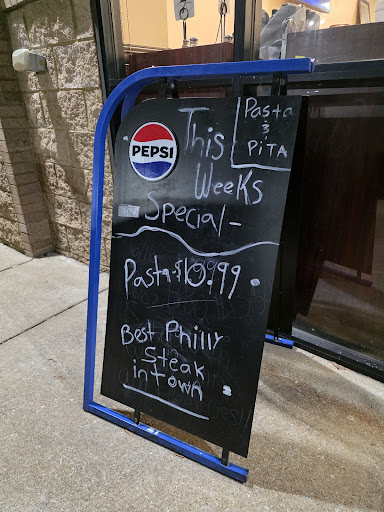 Pasta
&
PiTA
PEPSI
This
Weeks
Special -
Pasta-$10.99
Best Philly
Steak
in Town